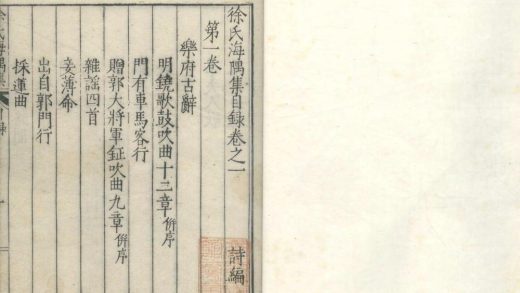 徐氏海隅集目録卷之一
詩編
第一卷
樂府古辭
明鐃歌鼓吹曲十二章併序
門有車馬客行
贈郭大將軍鉦吹曲九章併序
雜謡四首
妾薄命
出自郭門行
採蓮曲